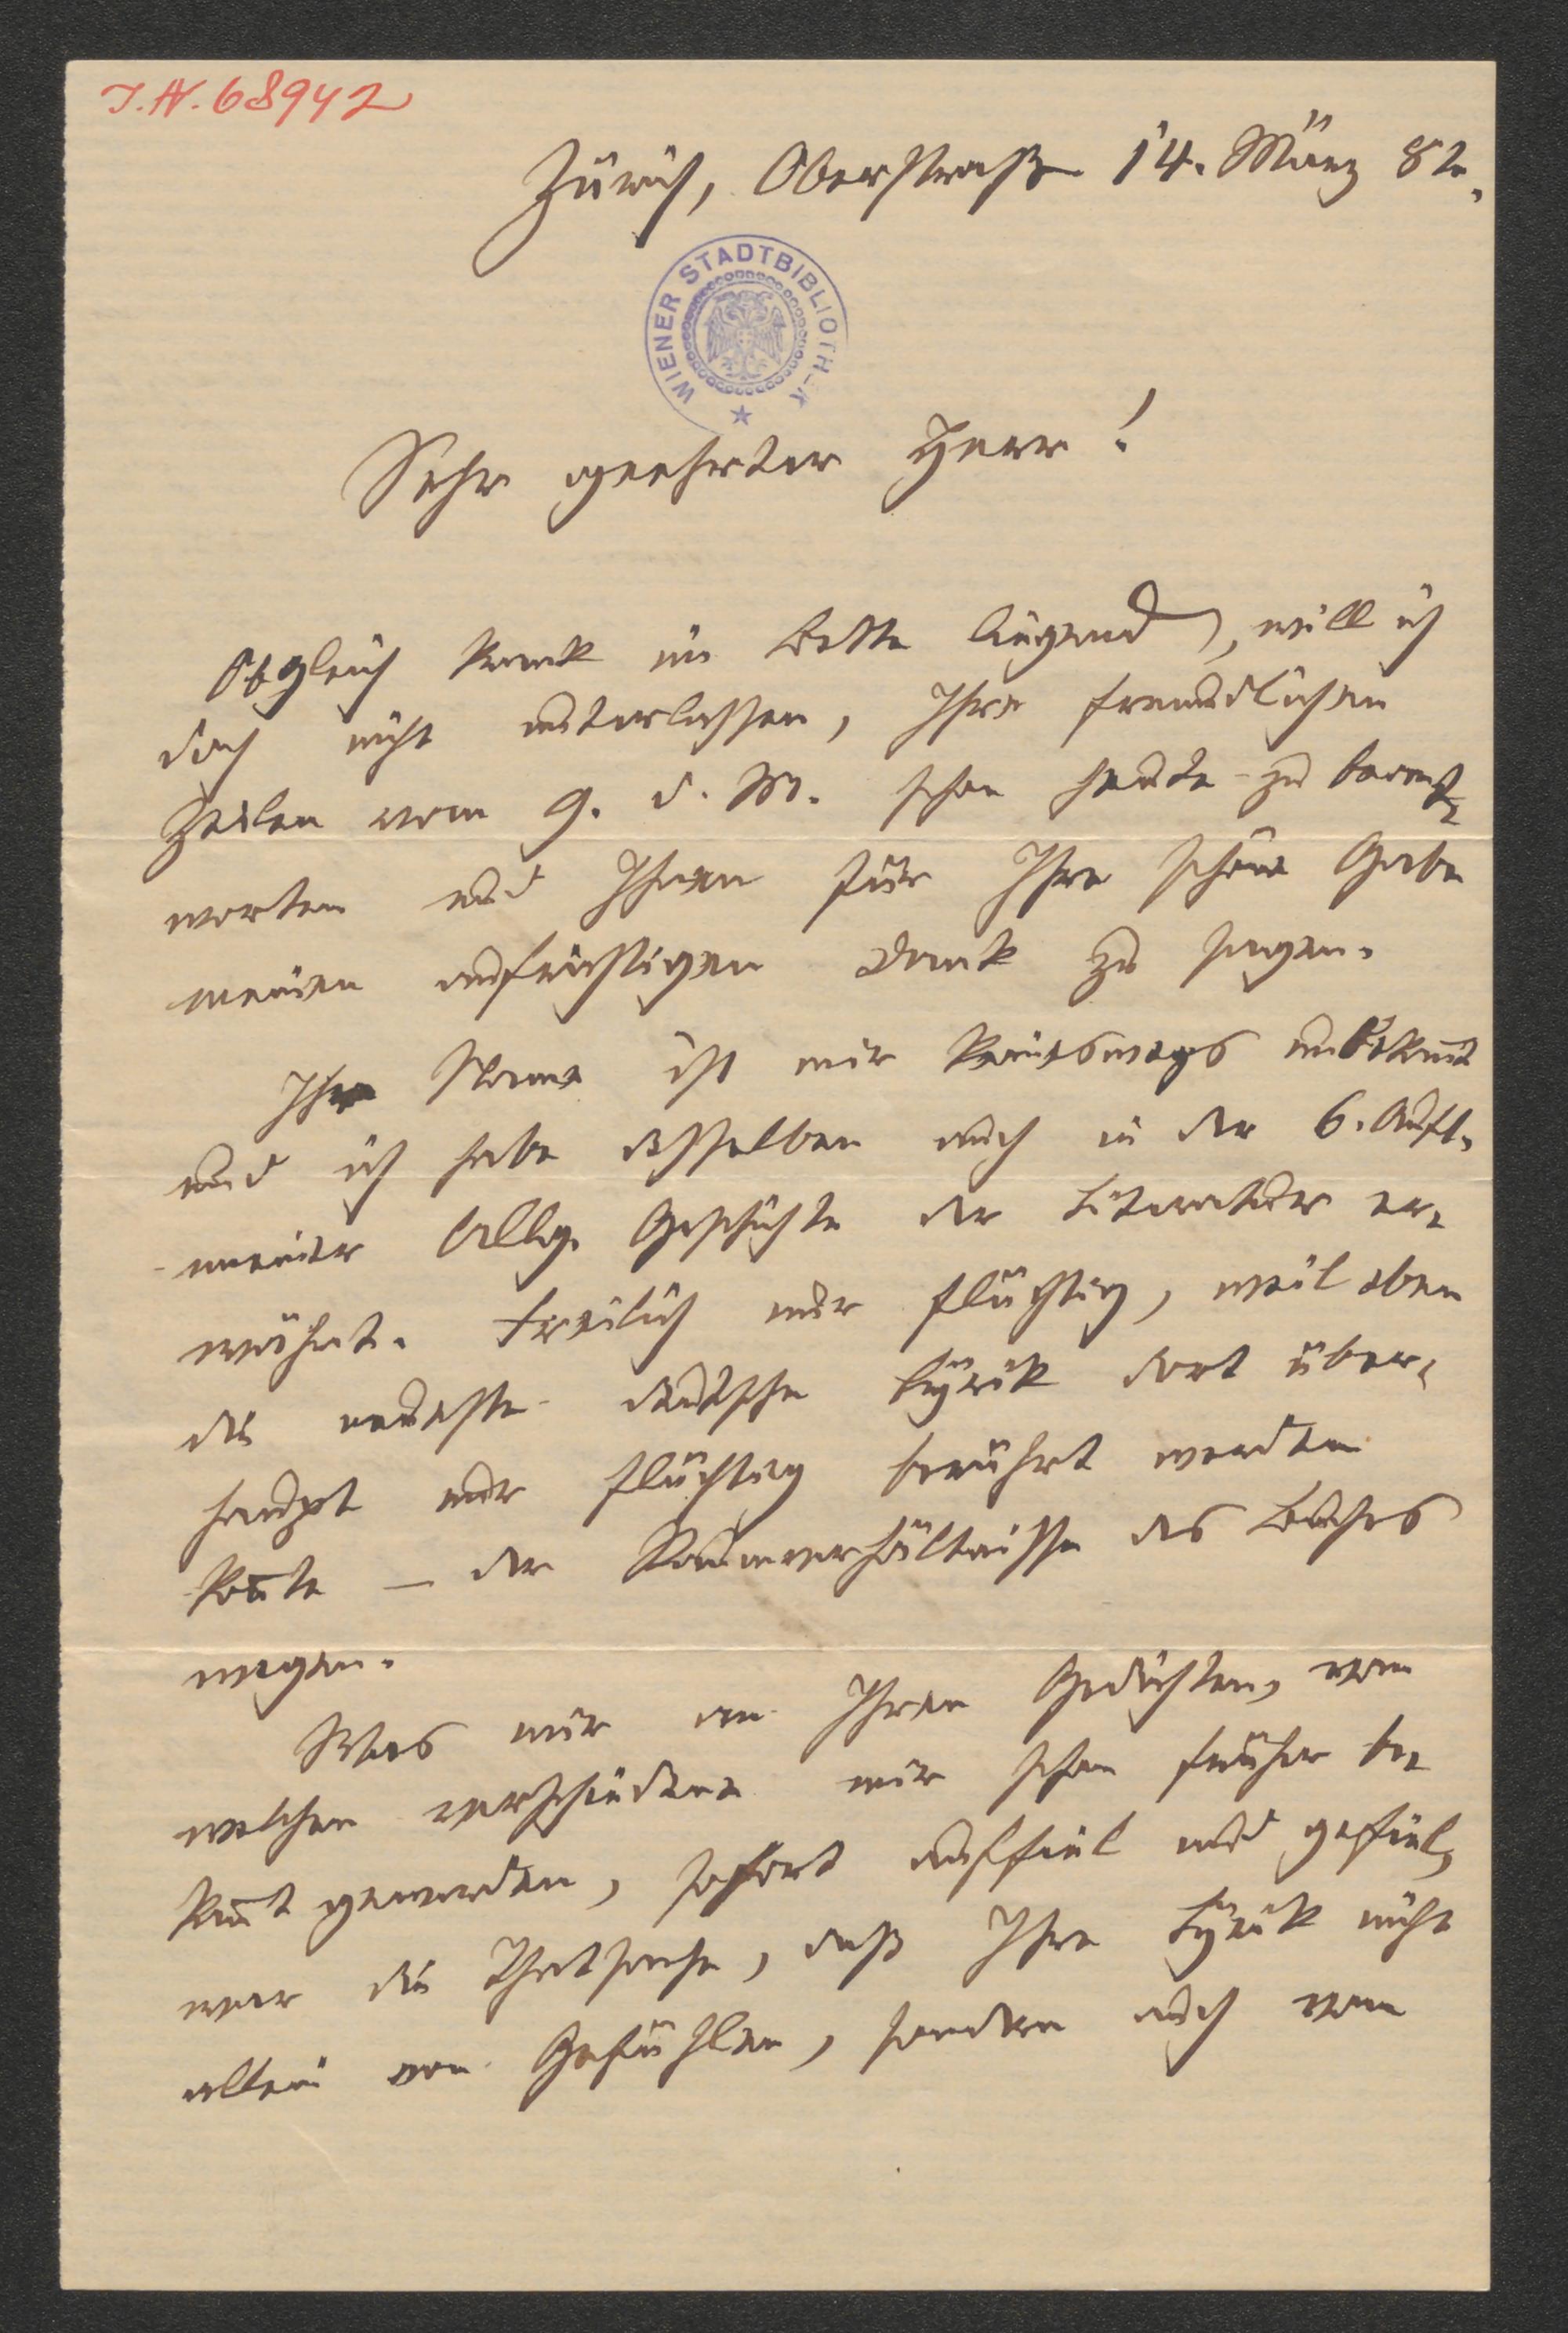 J.N. 68942
Zürich, Oberstraß 14. März 82.
WIENER STADTBIBLIOTHEK
Sehr geehrter Herr!
Obgleich krank im Bette liegend, will ich
doch nicht unterlassen, Ihre freundlichen
Zeilen vom 9. d. M. schon heute zu beant-
worten und Ihnen für Ihre schöne Gabe
meinen aufrichtigen Dank zu sagen.
Ihr Name ist mir keineswegs unbekan̄t
und ich habe desselben auch in der 6. Aufl.
meiner Allg. Geschichte der Literatur er-
wähnt. Freilich nur flüchtig, weil eben
die neueste deutsche Lyrik dort über-
haupt nur flüchtig berührt werden
kon̄te — der Raumverhältnisse des Buches
wegen.
Was mir an Ihren Gedichten, von
welchen verschiedene mir schon früher be-
kan̄t geworden, sofort auffiel und gefiel,
war die Thatsache, daß Ihre Lyrik nicht
allein von Gefühlen, sondern auch von